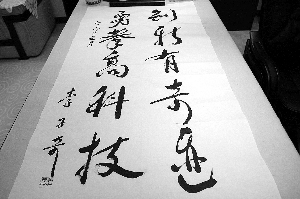 创新有奇迹
勇攀高科技
李子奇